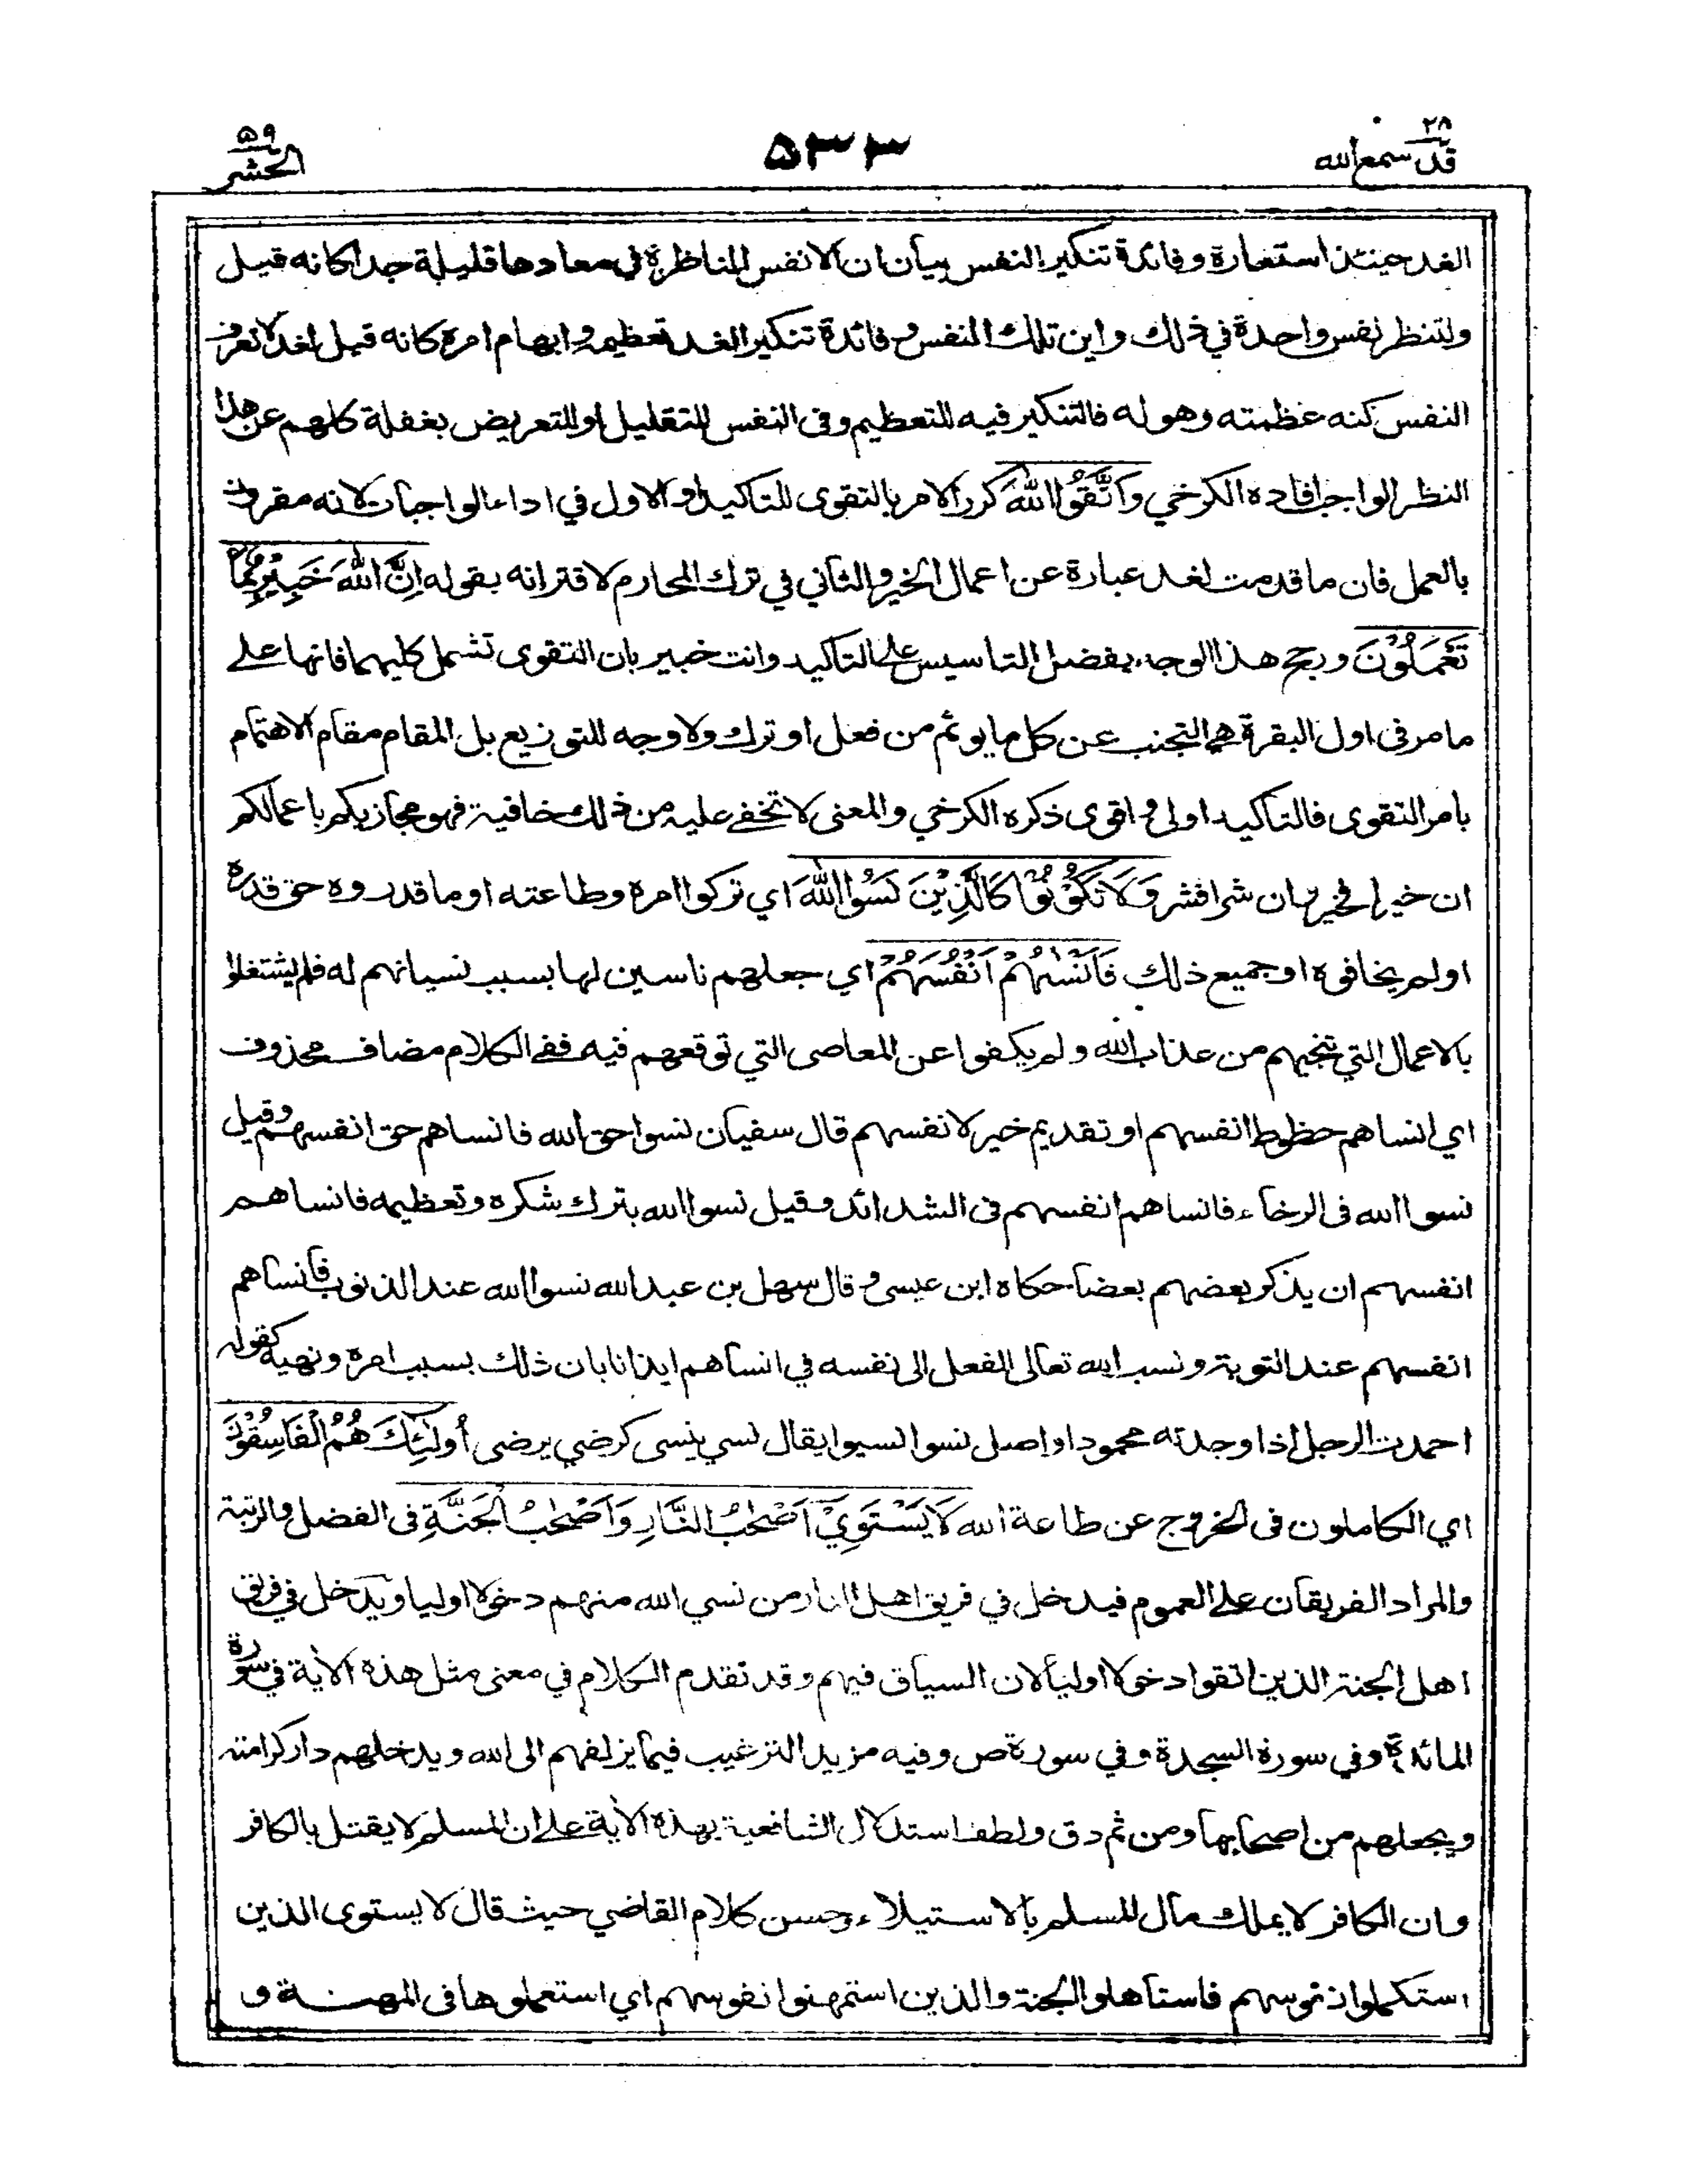 ٢٨
قد سمع الله
٥٣٣
٥٩
الحشر
الغد حينئذ استعارة وفائدة تنكير النفس بيان ان الانفس الناظرة في معادها قليلة جدا كانه قيل
ولتنظر نفس واحدة في ذلك واين تلك النفس وفائدة تنكير الغد تعظيمه وابهام امره كانه قيل لغد لا تعرف
النفس كنه عظمته وهوله فالتنكير فيه للتعظيم وفى النفس للتقليل او للتعريض بغفلة كلهم عن هذا
النظر الواجب افاده الكرخي وَاتَّقُوا اللّٰهَ كرر الامر بالتقوى للتاكيد او الاول في اداء الواجبات لانه مقرون
بالعمل فان ما قدمت لغد عبارة عن اعمال الخير والثاني في ترك المحارم لاقترانه بقوله اِنَّ اللّٰهَ خَبِيْرٌ بِمَا
تَعْمَلُوْنَ ورجح هذا الوجه بفضل التاسيس على التاكيد وانت خبير بان التقوى تشمل كليهما فانها على
ما مر فى اول البقرة هي التجنب عن كل ما يوثم من فعل او ترك ولا وجه للتوزيع بل المقام مقام الاهتمام
بامر التقوى فالتاكيد اولى واقوى ذكره الكرخي والمعنى لا تخفى عليه من ذلك خافية فهو مجازيكم باعمالكم
ان خيرا فخير وان شرا فشر وَلَا تَكُوْنُوْا كَالَّذِيْنَ نَسُوا اللّٰهَ اي تركوا امره وطاعته او ما قدروه حق قدره
او لم يخافوه او جميع ذلك فَاَنْسٰهُمْ اَنْفُسَهُمْ اي جعلهم ناسين لها بسبب نسيانهم له فلم يشتغلوا
بالاعمال التي تنجيهم من عذاب الله ولم يكفوا عن المعاصى التي توقعهم فيه ففى الكلام مضاف محذوف
اي انساهم حظوظ انفسهم او تقديم خير لانفسهم قال سفيان نسوا حق الله فانساهم حق انفسهم وقيل
نسوا الله فى الرخاء فانساهم انفسهم فى الشدائد وقيل نسوا الله بترك شكره وتعظيمه فانساهم
انفسهم ان يذكر بعضهم بعضا حكاه ابن عيسى وقال سهل بن عبدالله نسوا الله عند الذنوب فانساهم
انفسهم عند التوبة ونسب الله تعالى الفعل الى نفسه في انساهم ايذانا بان ذلك بسبب امره ونهيه كقوله
احمدت الرجل اذا وجدته محمودا واصل نسوا نسيوا يقال نسي ينسى كرضي يرضى اُولٰٓئِكَ هُمُ الْفَاسِقُوْنَ
اي الكاملون فى الخروج عن طاعة الله لَا يَسْتَوِيْ اَصْحٰبُ النَّارِ وَاَصْحٰبُ الْجَنَّةِ فى الفضل والرتبة
والمراد الفريقان على العموم فيدخل في فريق اهل النار من نسي الله منهم دخولا اوليا ويدخل في فريق
اهل الجنة الذين اتقوا دخولا اوليا لان السياق فيهم وقد تقدم الكلام في معنى مثل هذه الاٰية في سورة
المائدة وفي سورة السجدة وفي سورة ص وفيه مزيد الترغيب فيما يزلفهم الى الله ويدخلهم دار كرامته
ويجعلهم من اصحابها ومن ثم دق ولطف استدلال الشافعية بهذه الاٰية على ان المسلم لا يقتل بالكافر
وان الكافر لا يملك مال المسلم بالاستيلاء وحسن كلام القاضي حيث قال لا يستوى الذين
استكملوا نفوسهم فاستاهلوا الجنة والذين استمهنوا نفوسهم اي استعملوها فى المهنة و